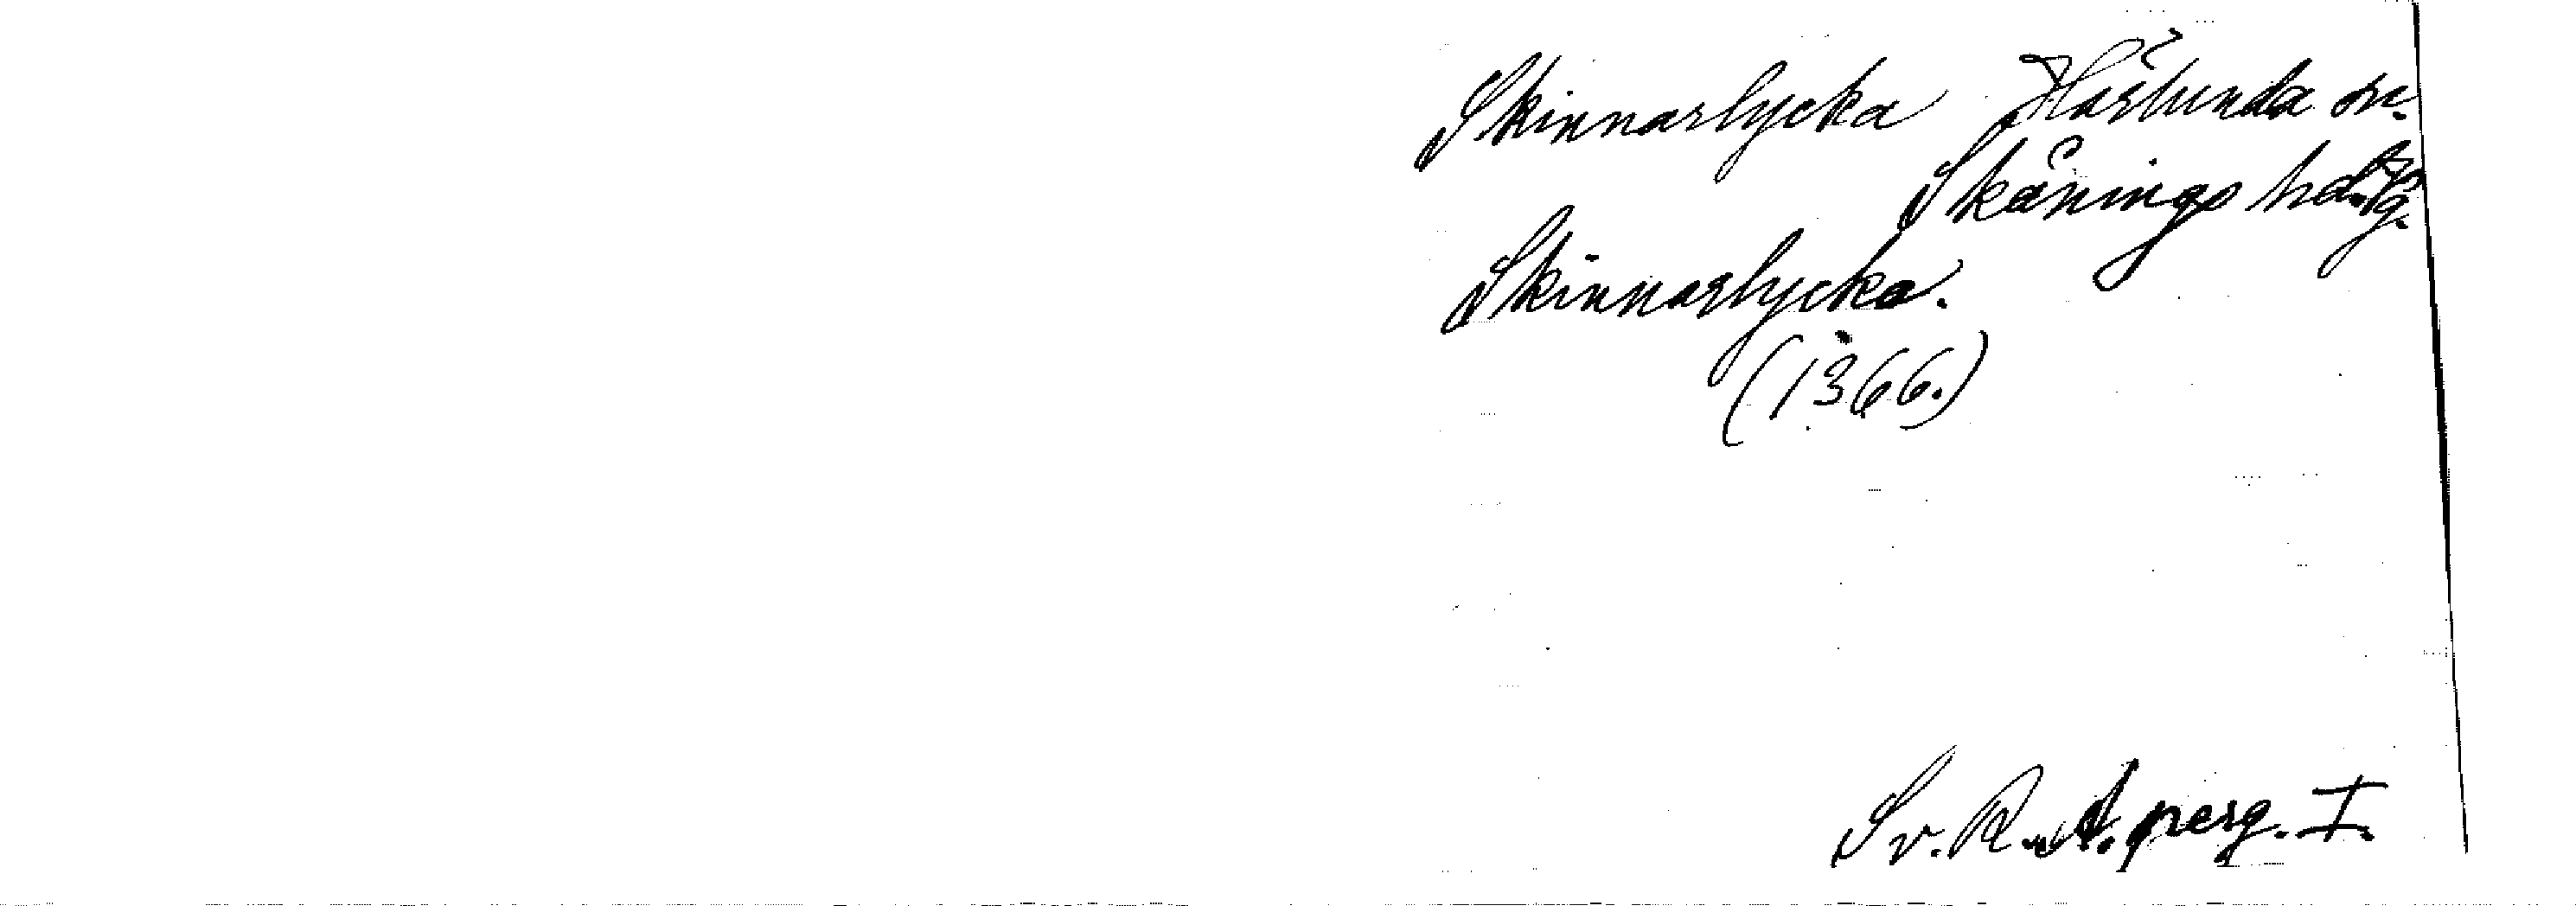 Skinnarlycka Härlunda sn.
Skånings hd. Vg.
Skinnarlycka.
(1366.)
Sv. R. A. perg. I.